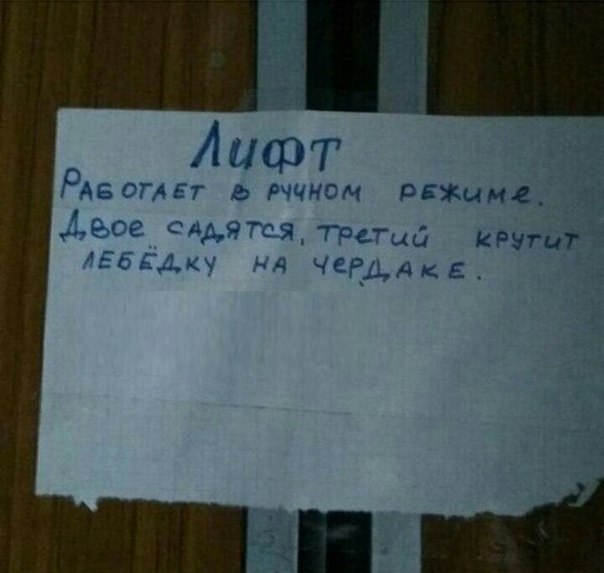 Лифт
Работает в ручном режиме.
Двое садятся, третий крутит
лебёдку на чердаке.